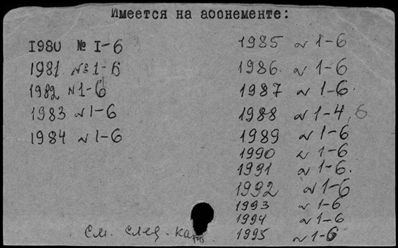 Имеется на абонементе:
1980 № 1-6
1981 № 1-6
1982 № 1-6
1983 № 1-6
1984 № 1-6
1985 № 1-6
1986 № 1-6
1987 № 1-6
1988 № 1-4, 6
1989 № 1-6
1990 № 1-6
1991 № 1-6
1992 № 1-6
1993 № 1-6
1994 № 1-6
1995 № 1-6
см. след. карт.